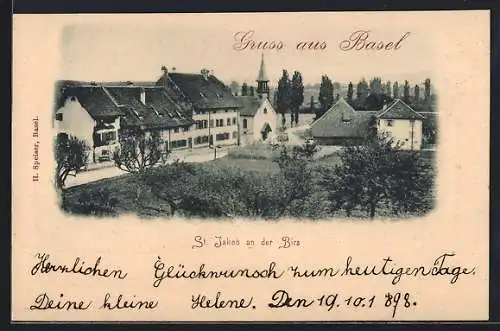 Gruss aus Basel
H. Speiser, Basel.
St. Jakob an der Birs
Herzlichen Glückwunsch zum heutigen Tage.
Deine kleine Helene. Den 19.10.1898.